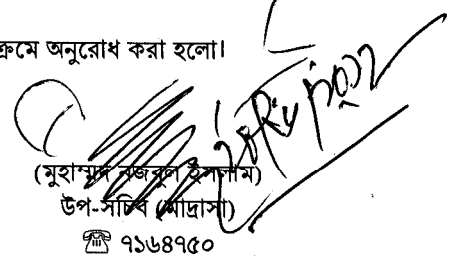 ক্রমে অনুরোধ করা হলো।
(মুহাম্মদ নজরুল ইসলাম)
উপ-সচিব (মাদ্রাসা)
☎ ৭১৬৪৭৫০